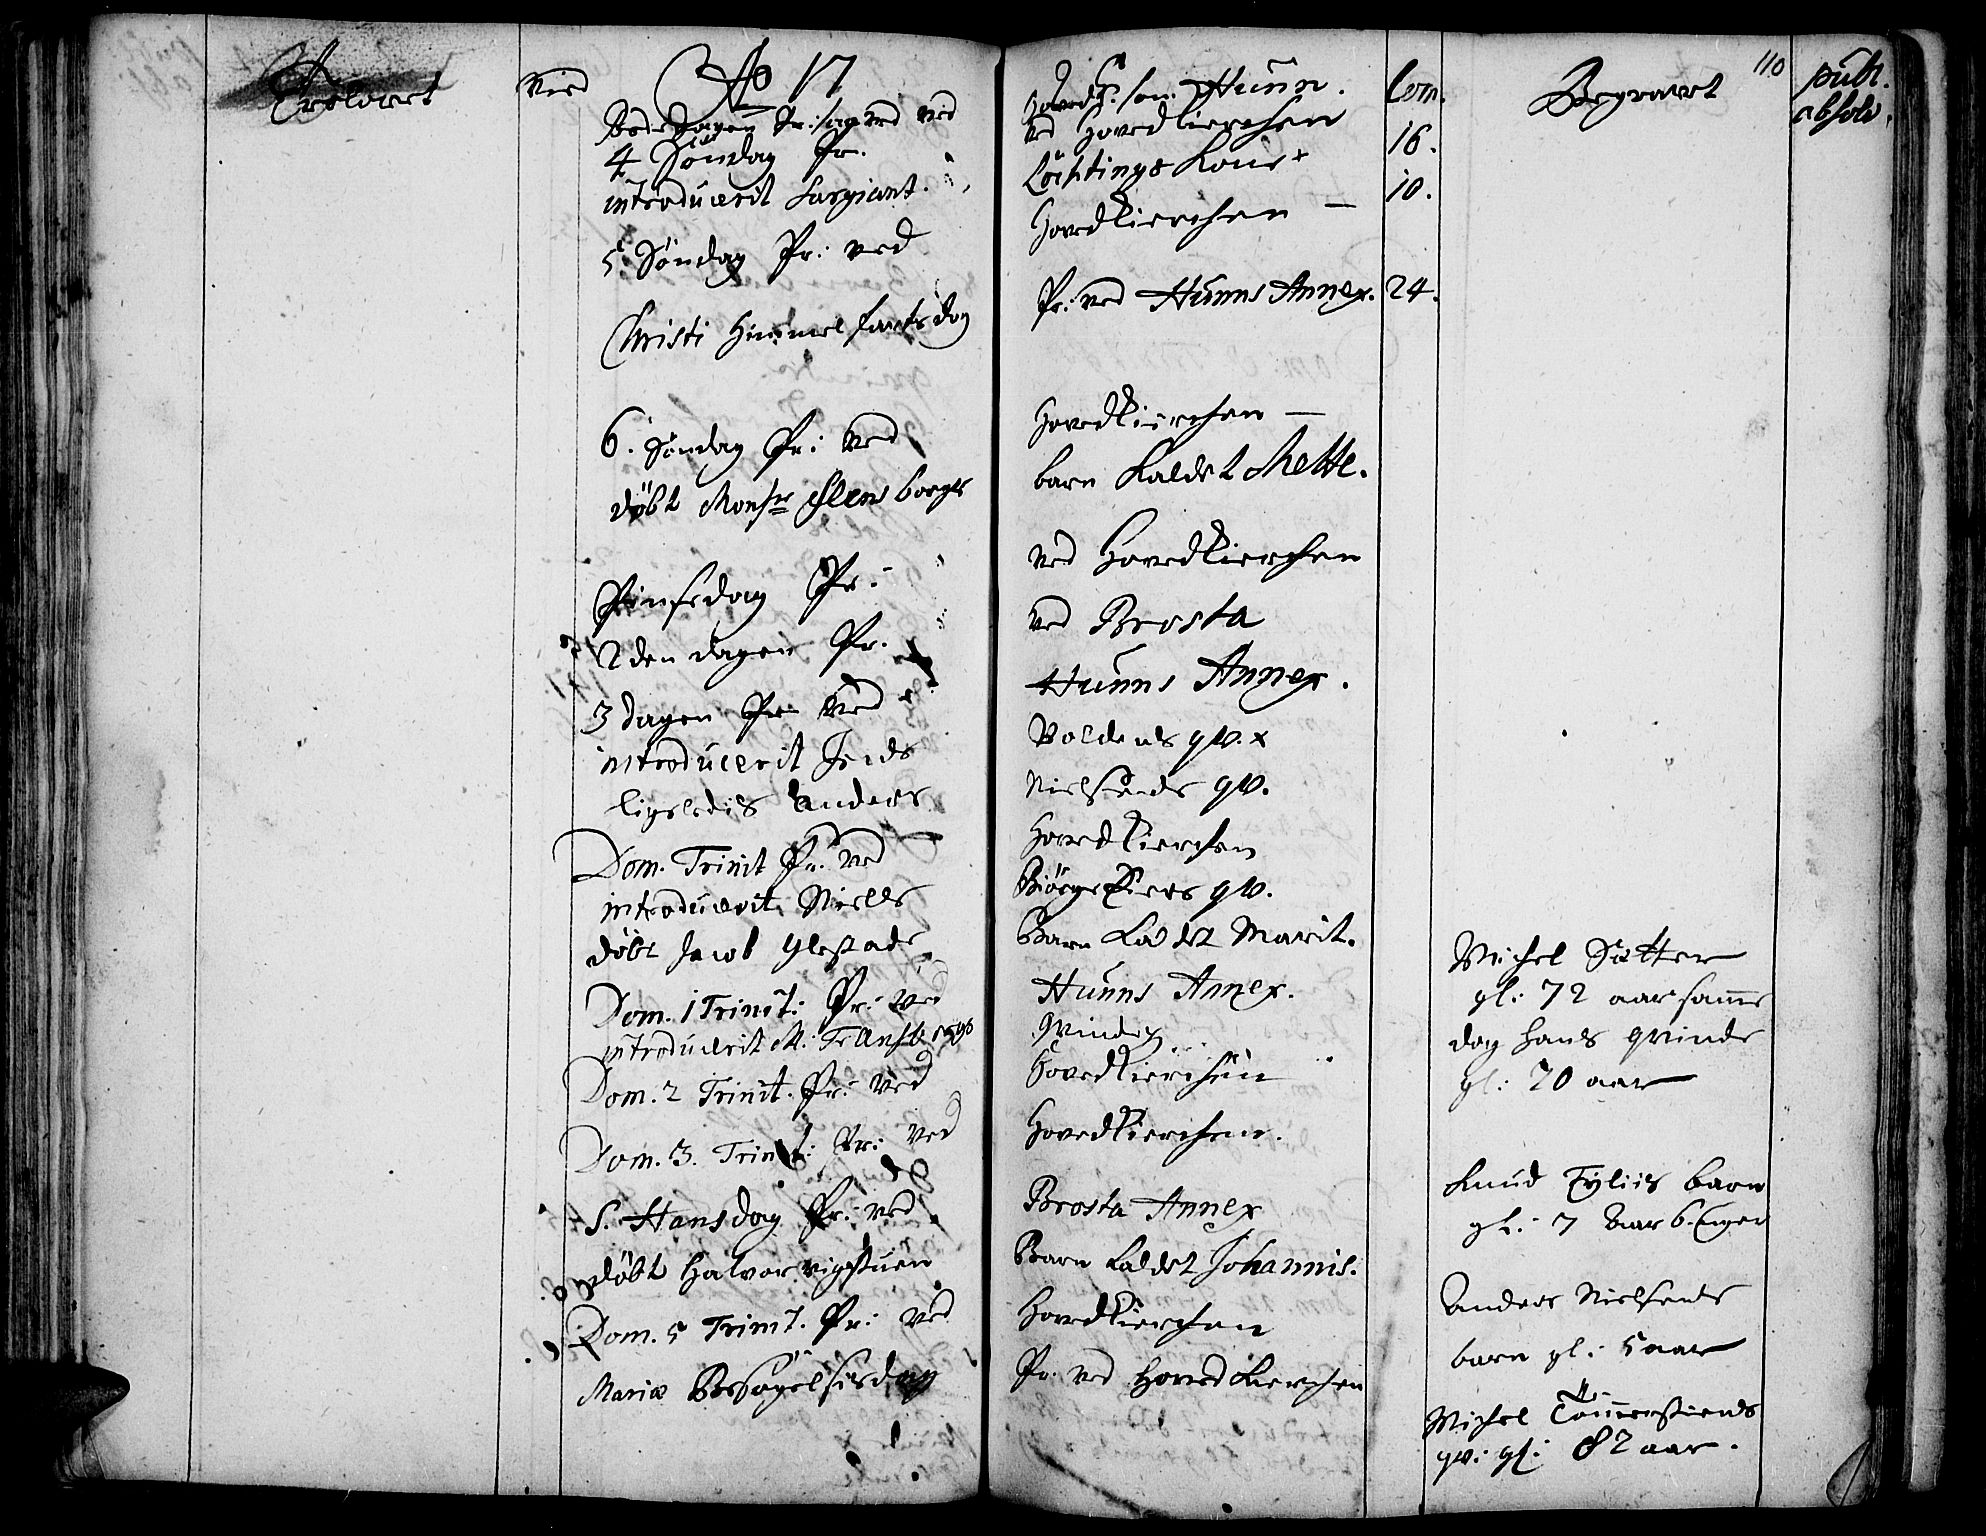 Troloved
Vied
Ao 17
Bededagen Pr: sagved ved
4 Søndag Pr.
introducerit Sargiant
5. Søndag Pr: ved
Christi Himmelfarts dag
6. Søndag Pr: ved
døbt Monsr Flensborgs
Pinsedag Pr:
2den dagen Pr.
3 dagen Pr: ved
introducerit Jens
ligeledis Anders
Dom. Trinit Pr: ved
introducerit Niels
døbt Jacob Glestads
Dom. 1 Trinit: Pr: ved
introducerit M: Flensborgs
Dom. 2 Trinit. Pr: ved
Dom. 3. Trinit: Pr: ved
S. Hans dag Pr: ved
døbt Halvor vigstuen
Dom. 5 Trinit. Pr: ved
Mariæ Besøgelsesdag
Hunn.
ved Hovedkierchen
Løchtings kone
Hovedkierchen –
Pr: ved Hunns Annex.
Hovedkierchen –
barn kaldet Mette.
ved Hovedkierchen
ved Brosta
Hunns Annex.
Boldends qv. x
Nielsends qv.
Hovedkierchen
Biørge qv.
Barn kaldet Marit.
Hunns Annex.
Qvinde
Hovedkierchen
Hovedkierchen.
Brosta Annex
Barn kaldet Johannis.
Hovedkierchen
Pr. ved Hovedkierchen
Com.
16.
10.
24.
Begravet
Michel Sætter
gl: 72 aar samme
dag hans qvinde
gl: 70 aar
Knud Tyliis barn
gl: 7 aar 6. uger
Anders Nielsends
barn gl: 5 aar
Michel Tømmerstuends
qv: gl: 82 aar.
110
publ.
absolv.